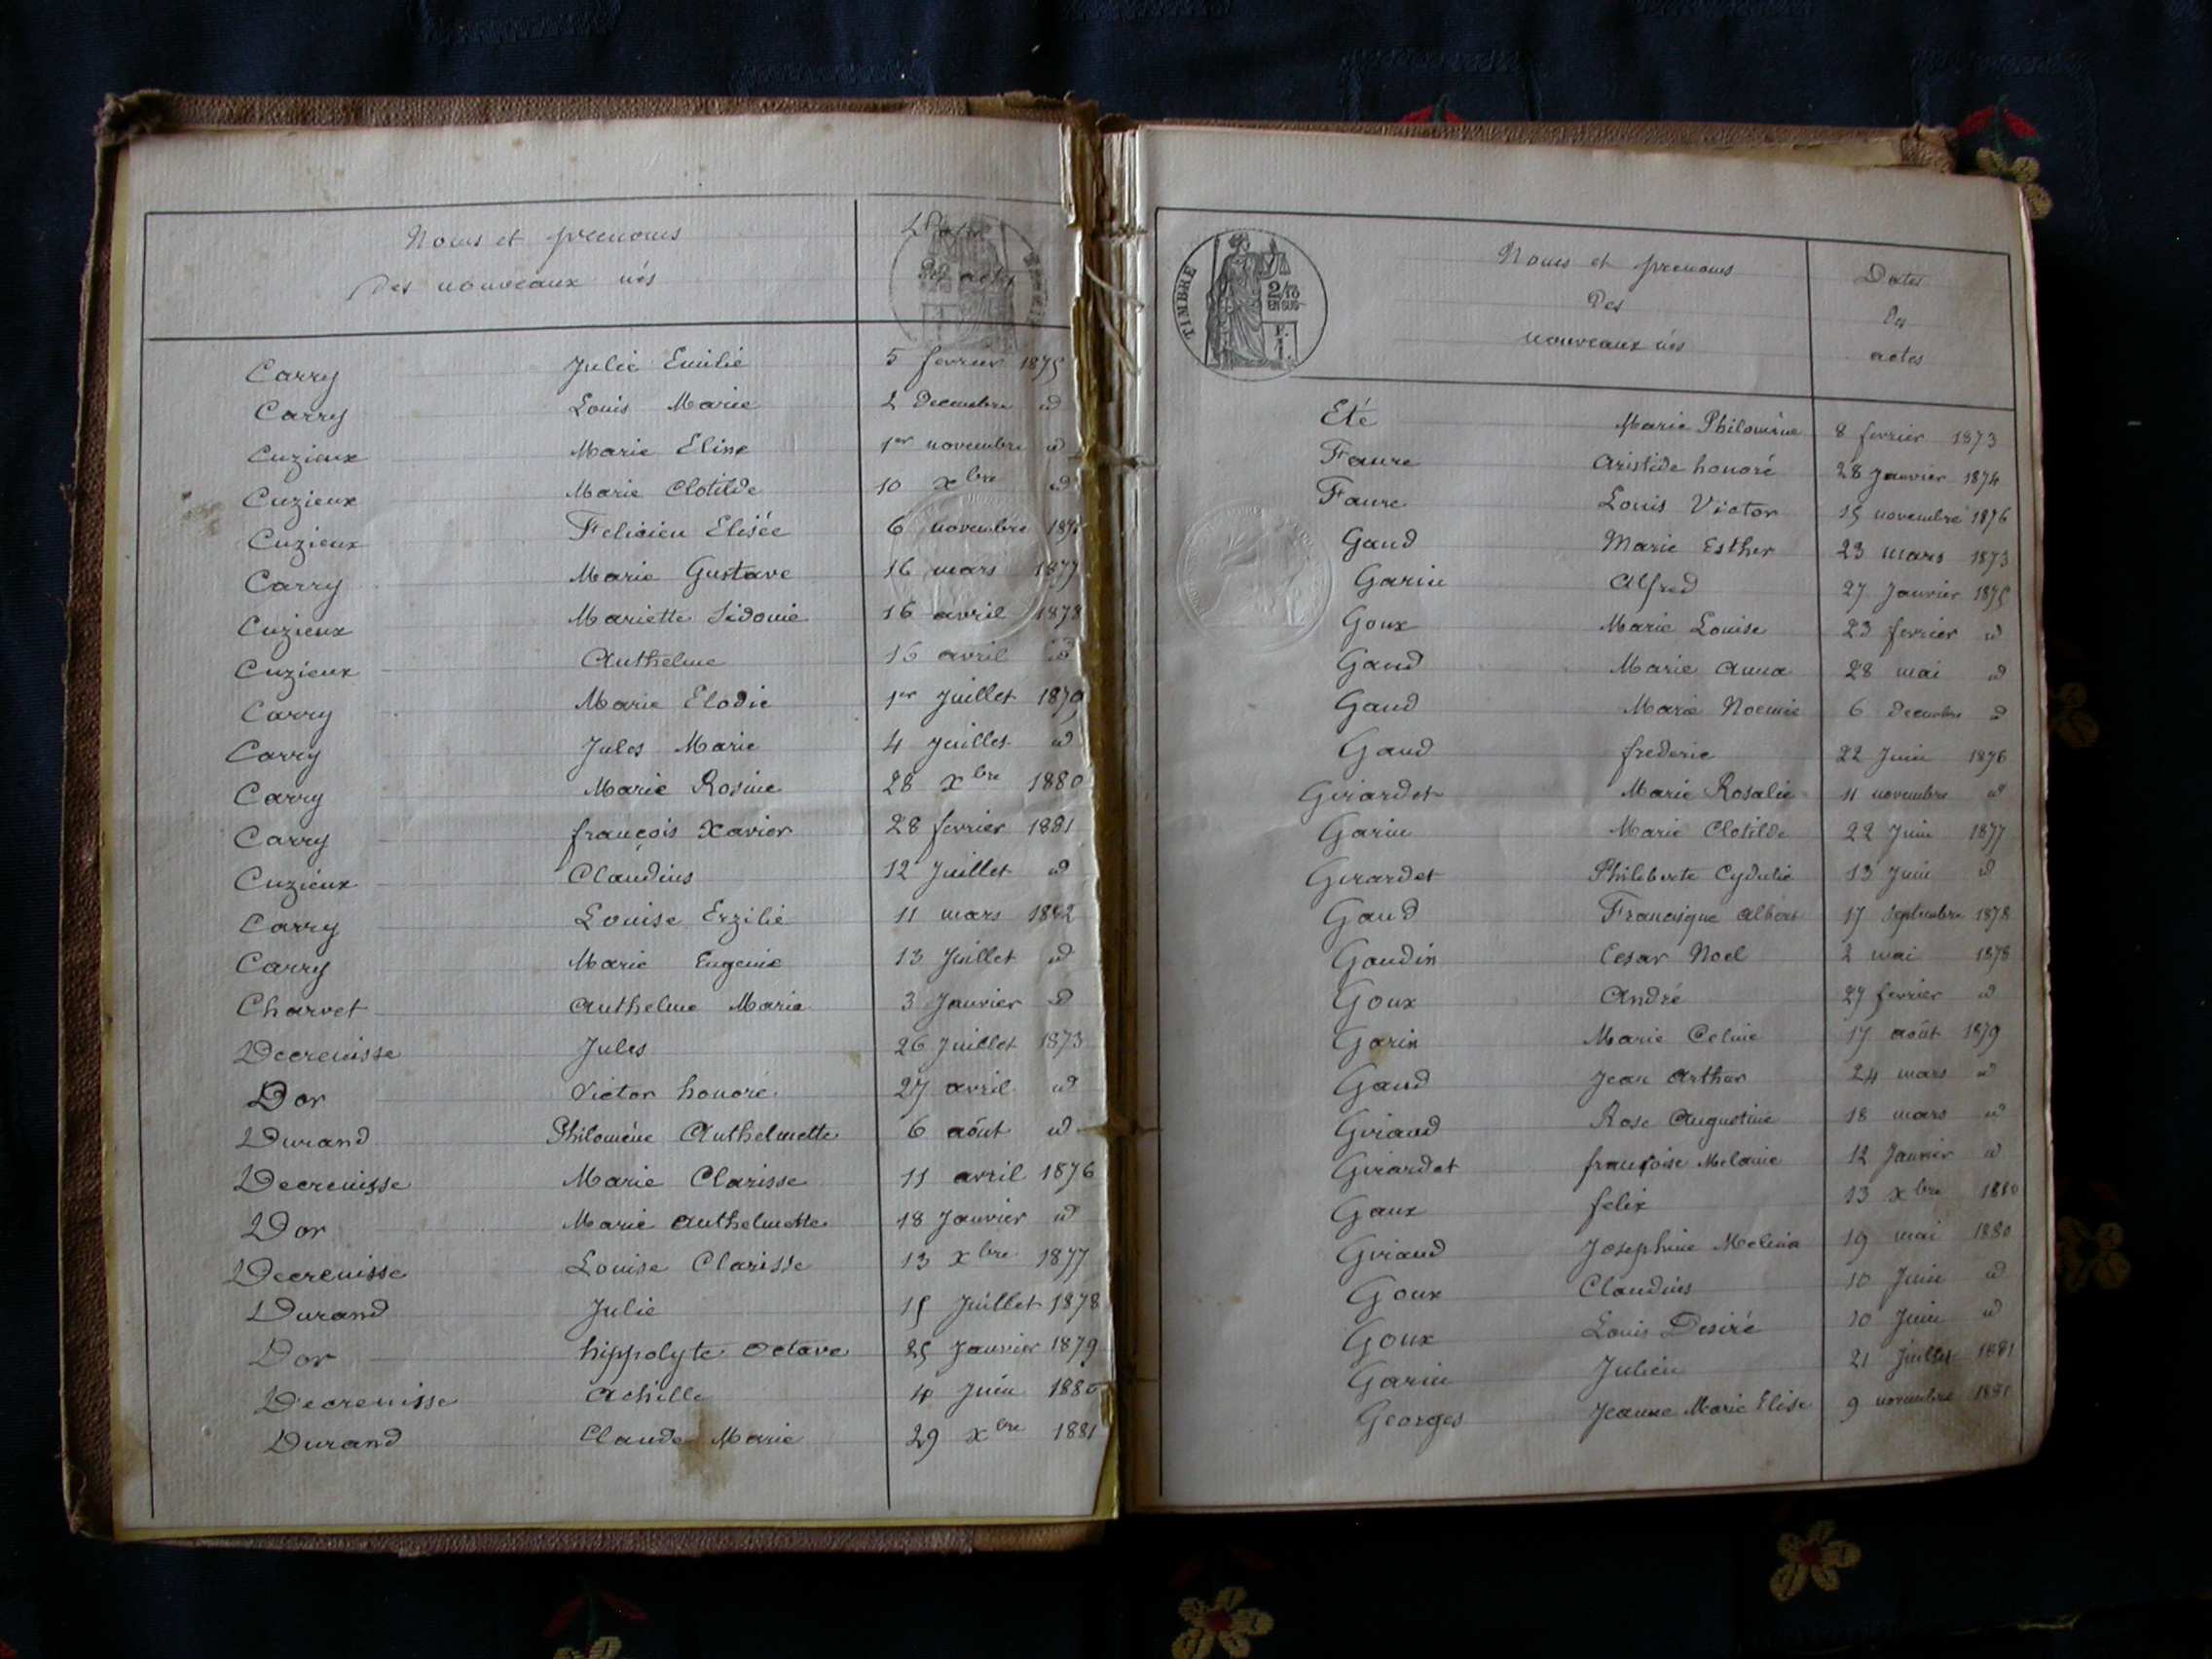 Noms et prenoms
des nouveaux nés
Dates
des actes
Carry Julie Emilie 5 fevrier 1875
Carry Louis Marie 2 decembre id
Cuzieux Marie Elise 1er novembre id
Cuzieux Marie Clotilde 10 xbre id
Cuzieux Felicien Elisée 6 novembre
Carry Marie Gustave 16 mars 1877
Cuzieux Mariette Sidonie 16 avril 1878
Cuzieux Anthelme 16 avril id
Carry Marie Elodie 1er Juillet 1879
Carry Jules Marie 4 Juillet id
Carry Marie Rosine 28 xbre 1880
Carry françois Xavier 28 fevrier 1881
Cuzieux Claudius 12 Juillet id
Carry Louise Erzilie 11 mars 1882
Carry Marie Eugenie 13 Juillet id
Charvet Anthelme Marie 3 Janvier id
Decrenisse Jules 26 Juillet 1873
Dor Victor honoré 27 avril id
Durand Philomène Anthelmette 6 août id
Decrenisse Marie Clarisse 11 avril 1876
Dor Marie Anthelmette 18 Janvier id
Decrenisse Louise Clarisse 13 xbre 1877
Durand Julie 15 Juillet 1878
Dor hippolyte Octave 25 Janvier 1879
Decrenisse Achille 4 Juin 1880
Durand Claude Marie 29 xbre 1881
TIMBRE
2/10
EN SUS
Noms et prenoms
des
nouveaux nés
Dates
des
actes
Eté Marie Philomène 8 fevrier 1873
Faure Aristide honoré 28 Janvier 1874
Faure Louis Victor 15 novembre 1876
Gaud Marie Esther 23 mars 1873
Garin Alfred 27 Janvier 1875
Goux Marie Louise 23 fevrier id
Gaud Marie Anna 28 mai id
Gaud Marie Noemie 6 decembre id
Gaud frederic 22 Juin 1876
Girardet Marie Rosalie 11 novembre id
Garin Marie Clotilde 22 Juin 1877
Girardet Philiberte Cydulie 13 Juin id
Gaud Francisque Albert 17 septembre 1878
Gaudin Cesar Noel 2 mai 1878
Goux André 27 fevrier id
Garin Marie Celine 17 août 1879
Gaud Jean Arthur 24 mars id
Giraud Rose Augustine 18 mars id
Girardet françoise Melanie 12 Janvier id
Gaux felix 13 xbre 1880
Giraud Josephine Melina 19 mai 1880
Goux Claudius 10 Juin id
Goux Louis Desiré 10 Juin id
Garin Julien 21 Juillet 1881
Georges Jeanne Marie Elise 9 novembre 1881